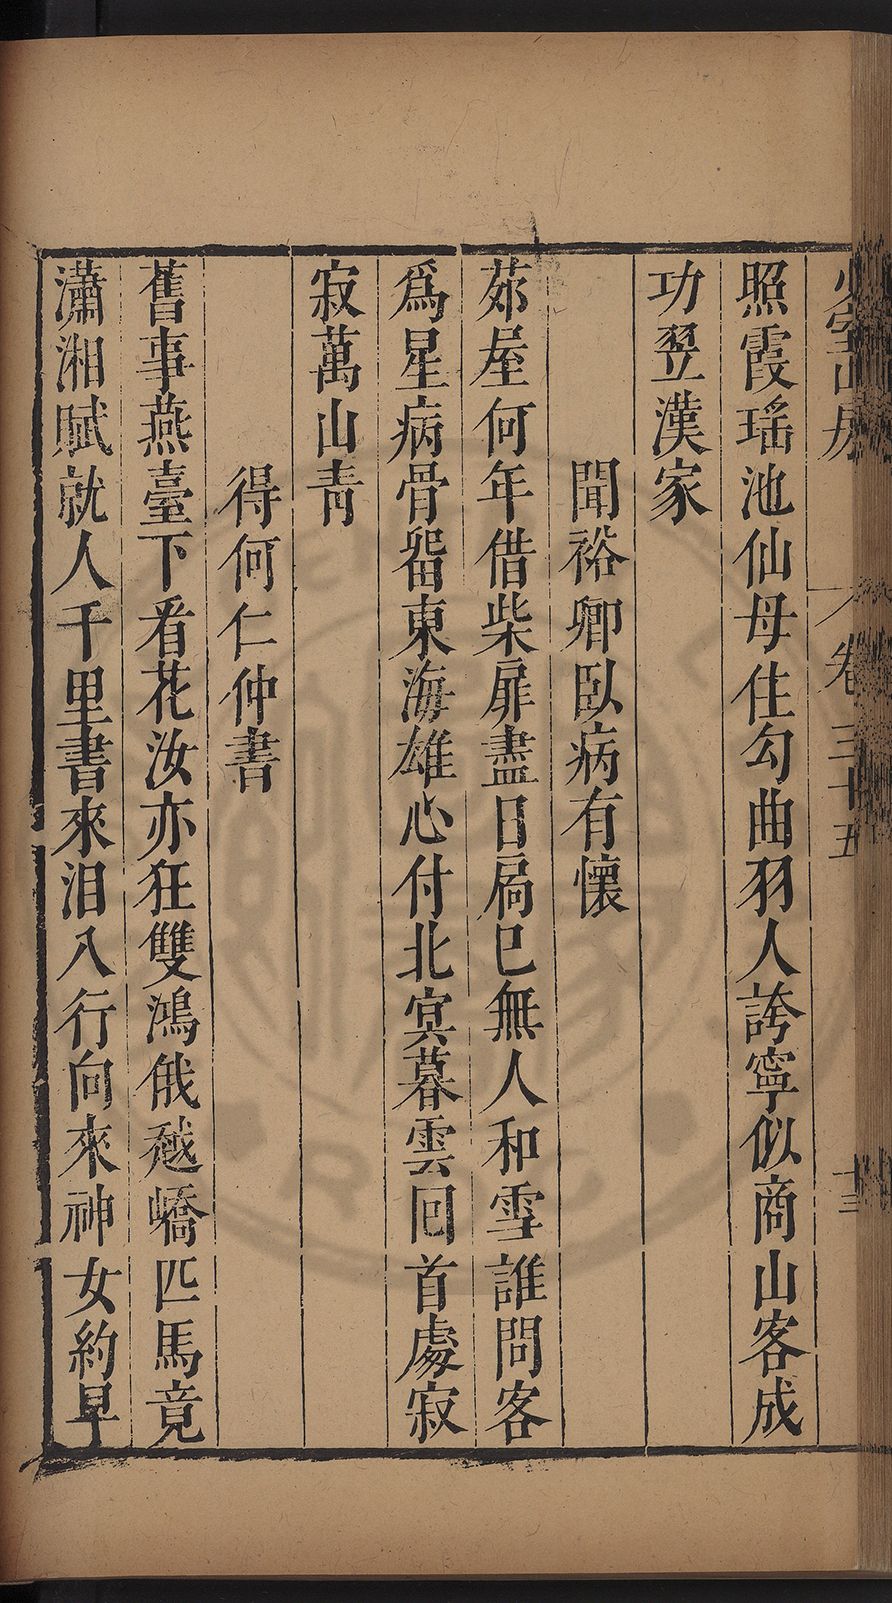 少室山房
卷三十五
十三
照霞瑤池仙母住勾曲羽人誇寧似商山客成
功翌漢家
聞裕卿臥病有懷
茆屋何年借柴扉盡日扃巳無人和雪誰問客
爲星病骨畱東海雄心付北冥暮雲囘首處寂
寂萬山青
得何仁仲書
舊事燕臺下看花汝亦狂雙鴻俄越嶠匹馬竟
瀟湘賦就人千里書來淚八行向來神女約早